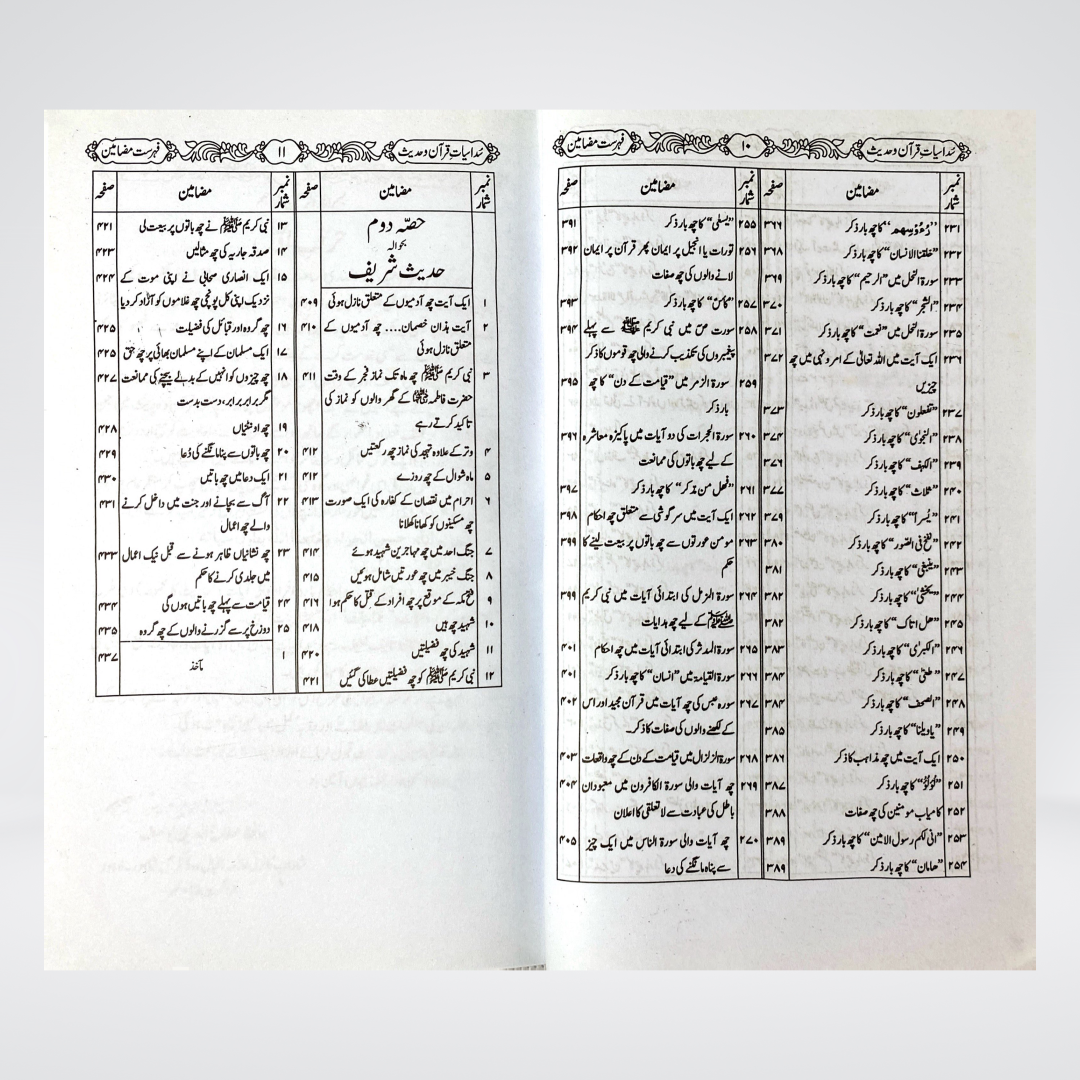 سُداسیاتِ قرآن و حدیث ۱۰ فہرست مضامین
نمبر شمار مضامین صفحہ
۲۳۱ ”رُءُوْسِهِمْ“ کا چھ بار ذکر ۳۶۷
۲۳۲ ”خلقنا الانسان“ کا چھ بار ذکر ۳۶۸
۲۳۳ سورۃ النحل میں ”الرحیم“ کا چھ بار ذکر ۳۶۹
۲۳۴ ”الشجر“ کا چھ بار ذکر ۳۷۰
۲۳۵ سورۃ النحل میں ”نعمت“ کا چھ بار ذکر ۳۷۱
۲۳۶ ایک آیت میں اللہ تعالیٰ کے امر و نہی میں چھ ۳۷۲
چیزیں
۲۳۷ ”تفعلون“ کا چھ بار ذکر ۳۷۳
۲۳۸ ”النجوٰی“ کا چھ بار ذکر ۳۷۴
۲۳۹ ”الکہف“ کا چھ بار ذکر ۳۷۶
۲۴۰ ”ثلاث“ کا چھ بار ذکر ۳۷۷
۲۴۱ ”یُسراً“ کا چھ بار ذکر ۳۷۹
۲۴۲ ”نفخ فی الصور“ کا چھ بار ذکر ۳۸۰
۲۴۳ ”ینبغی“ کا چھ بار ذکر ۳۸۱
۲۴۴ ”یخشٰی“ کا چھ بار ذکر ۳۸۲
۲۴۵ ”ھل اتاک“ کا چھ بار ذکر ۳۸۲
۲۴۶ ”الکبرٰی“ کا چھ بار ذکر ۳۸۳
۲۴۷ ”طغٰی“ کا چھ بار ذکر ۳۸۴
۲۴۸ ”الصحف“ کا چھ بار ذکر ۳۸۴
۲۴۹ ”یاویلنا“ کا چھ بار ذکر ۳۸۵
۲۵۰ ایک آیت میں چھ مذاہب کا ذکر ۳۸۶
۲۵۱ ”لُؤلُؤ“ کا چھ بار ذکر ۳۸۷
۲۵۲ کامیاب مومنین کی چھ صفات ۳۸۸
۲۵۳ ”انی لکم رسول الامین“ کا چھ بار ذکر ۳۸۹
۲۵۴ ”ھامان“ کا چھ بار ذکر ۳۸۹
نمبر شمار مضامین صفحہ
۲۵۵ ”یسعٰی“ کا چھ بار ذکر ۳۹۱
۲۵۶ تورات یا انجیل پر ایمان پھر قرآن پر ایمان ۳۹۲
لانے والوں کی چھ صفات
۲۵۷ ”کاسٍ“ کا چھ بار ذکر ۳۹۳
۲۵۸ سورت صٓ میں نبی کریم ﷺ سے پہلے ۳۹۴
پیغمبروں کی تکذیب کرنے والی چھ قوموں کا ذکر
۲۵۹ سورۃ الزمر میں ”قیامت کے دن“ کا چھ ۳۹۵
بار ذکر
۲۶۰ سورۃ الحجرات کی دو آیات میں پاکیزہ معاشرہ ۳۹۶
کے لیے چھ باتوں کی ممانعت
۲۶۱ ”فھل من مدکر“ کا چھ بار ذکر ۳۹۷
۲۶۲ ایک آیت میں سرگوشی سے متعلق چھ احکام ۳۹۸
۲۶۳ مومن عورتوں سے چھ باتوں پر بیعت لینے کا ۳۹۹
حکم
۲۶۴ سورۃ المزمل کی ابتدائی آیات میں نبی کریم ۳۹۹
ﷺ کے لیے چھ ہدایات
۲۶۵ سورۃ المدثر کی ابتدائی آیات میں چھ احکام ۴۰۱
۲۶۶ سورۃ القیامۃ میں ”انسان“ کا چھ بار ذکر ۴۰۱
۲۶۷ سورہ عبس کی چھ آیات میں قرآن مجید اور اس ۴۰۲
کے لکھنے والوں کی صفات کا ذکر۔
۲۶۸ سورۃ الزلزال میں قیامت کے دن کے چھ واقعات ۴۰۳
۲۶۹ چھ آیات والی سورۃ الکافرون میں معبودان ۴۰۴
باطل کی عبادت سے لاتعلقی کا اعلان
۲۷۰ چھ آیات والی سورۃ الناس میں ایک چیز ۴۰۵
سے پناہ مانگنے کی دعا
سُداسیاتِ قرآن و حدیث ۱۱ فہرست مضامین
نمبر شمار مضامین صفحہ
حصّہ دوم
بحوالہ
حدیث شریف
۱ ایک آیت چھ آدمیوں کے متعلق نازل ہوئی ۴۰۹
۲ آیت ہذان خصمان.... چھ آدمیوں کے ۴۱۰
متعلق نازل ہوئی
۳ نبی کریم ﷺ چھ ماہ تک نماز فجر کے وقت ۴۱۱
حضرت فاطمہؓ کے گھر والوں کو نماز کی
تاکید کرتے رہے
۴ وتر کے علاوہ تہجد کی نماز چھ رکعتیں ۴۱۲
۵ ماہ شوال کے چھ روزے ۴۱۲
۶ احرام میں نقصان کے کفارہ کی ایک صورت ۴۱۳
چھ مسکینوں کو کھانا کھلانا
۷ جنگ احد میں چھ مہاجرین شہید ہوئے ۴۱۴
۸ جنگ خیبر میں چھ عورتیں شامل ہوئیں ۴۱۵
۹ فتح مکہ کے موقع پر چھ افراد کے قتل کا حکم ہوا ۴۱۶
۱۰ شہید چھ ہیں ۴۱۸
۱۱ شہید کی چھ فضیلتیں ۴۲۰
۱۲ نبی کریم ﷺ کو چھ فضیلتیں عطا کی گئیں ۴۲۱
نمبر شمار مضامین صفحہ
۱۳ نبی کریم ﷺ نے چھ باتوں پر بیعت لی ۴۲۱
۱۴ صدقہ جاریہ کی چھ مثالیں ۴۲۳
۱۵ ایک انصاری صحابی نے اپنی موت کے ۴۲۴
نزدیک اپنی کل پونجی چھ غلاموں کو آزاد کر دیا
۱۶ چھ گروہ اور قبائل کی فضیلت ۴۲۵
۱۷ ایک مسلمان کے اپنے مسلمان بھائی پر چھ حق ۴۲۵
۱۸ چھ چیزوں کو انہیں کے بدلے بیچنے کی ممانعت ۴۲۷
مگر برابر برابر، دست بدست
۱۹ چھ اونٹنیاں ۴۲۸
۲۰ چھ باتوں سے پناہ مانگنے کی دُعا ۴۲۹
۲۱ ایک دعا میں چھ باتیں ۴۳۰
۲۲ آگ سے بچانے اور جنت میں داخل کرنے ۴۳۱
والے چھ اعمال
۲۳ چھ نشانیاں ظاہر ہونے سے قبل نیک اعمال ۴۳۳
میں جلدی کرنے کا حکم
۲۴ قیامت سے پہلے چھ باتیں ہوں گی ۴۳۴
۲۵ دوزخ پر سے گزرنے والوں کے چھ گروہ ۴۳۵
۱ مآخذ ۴۳۷